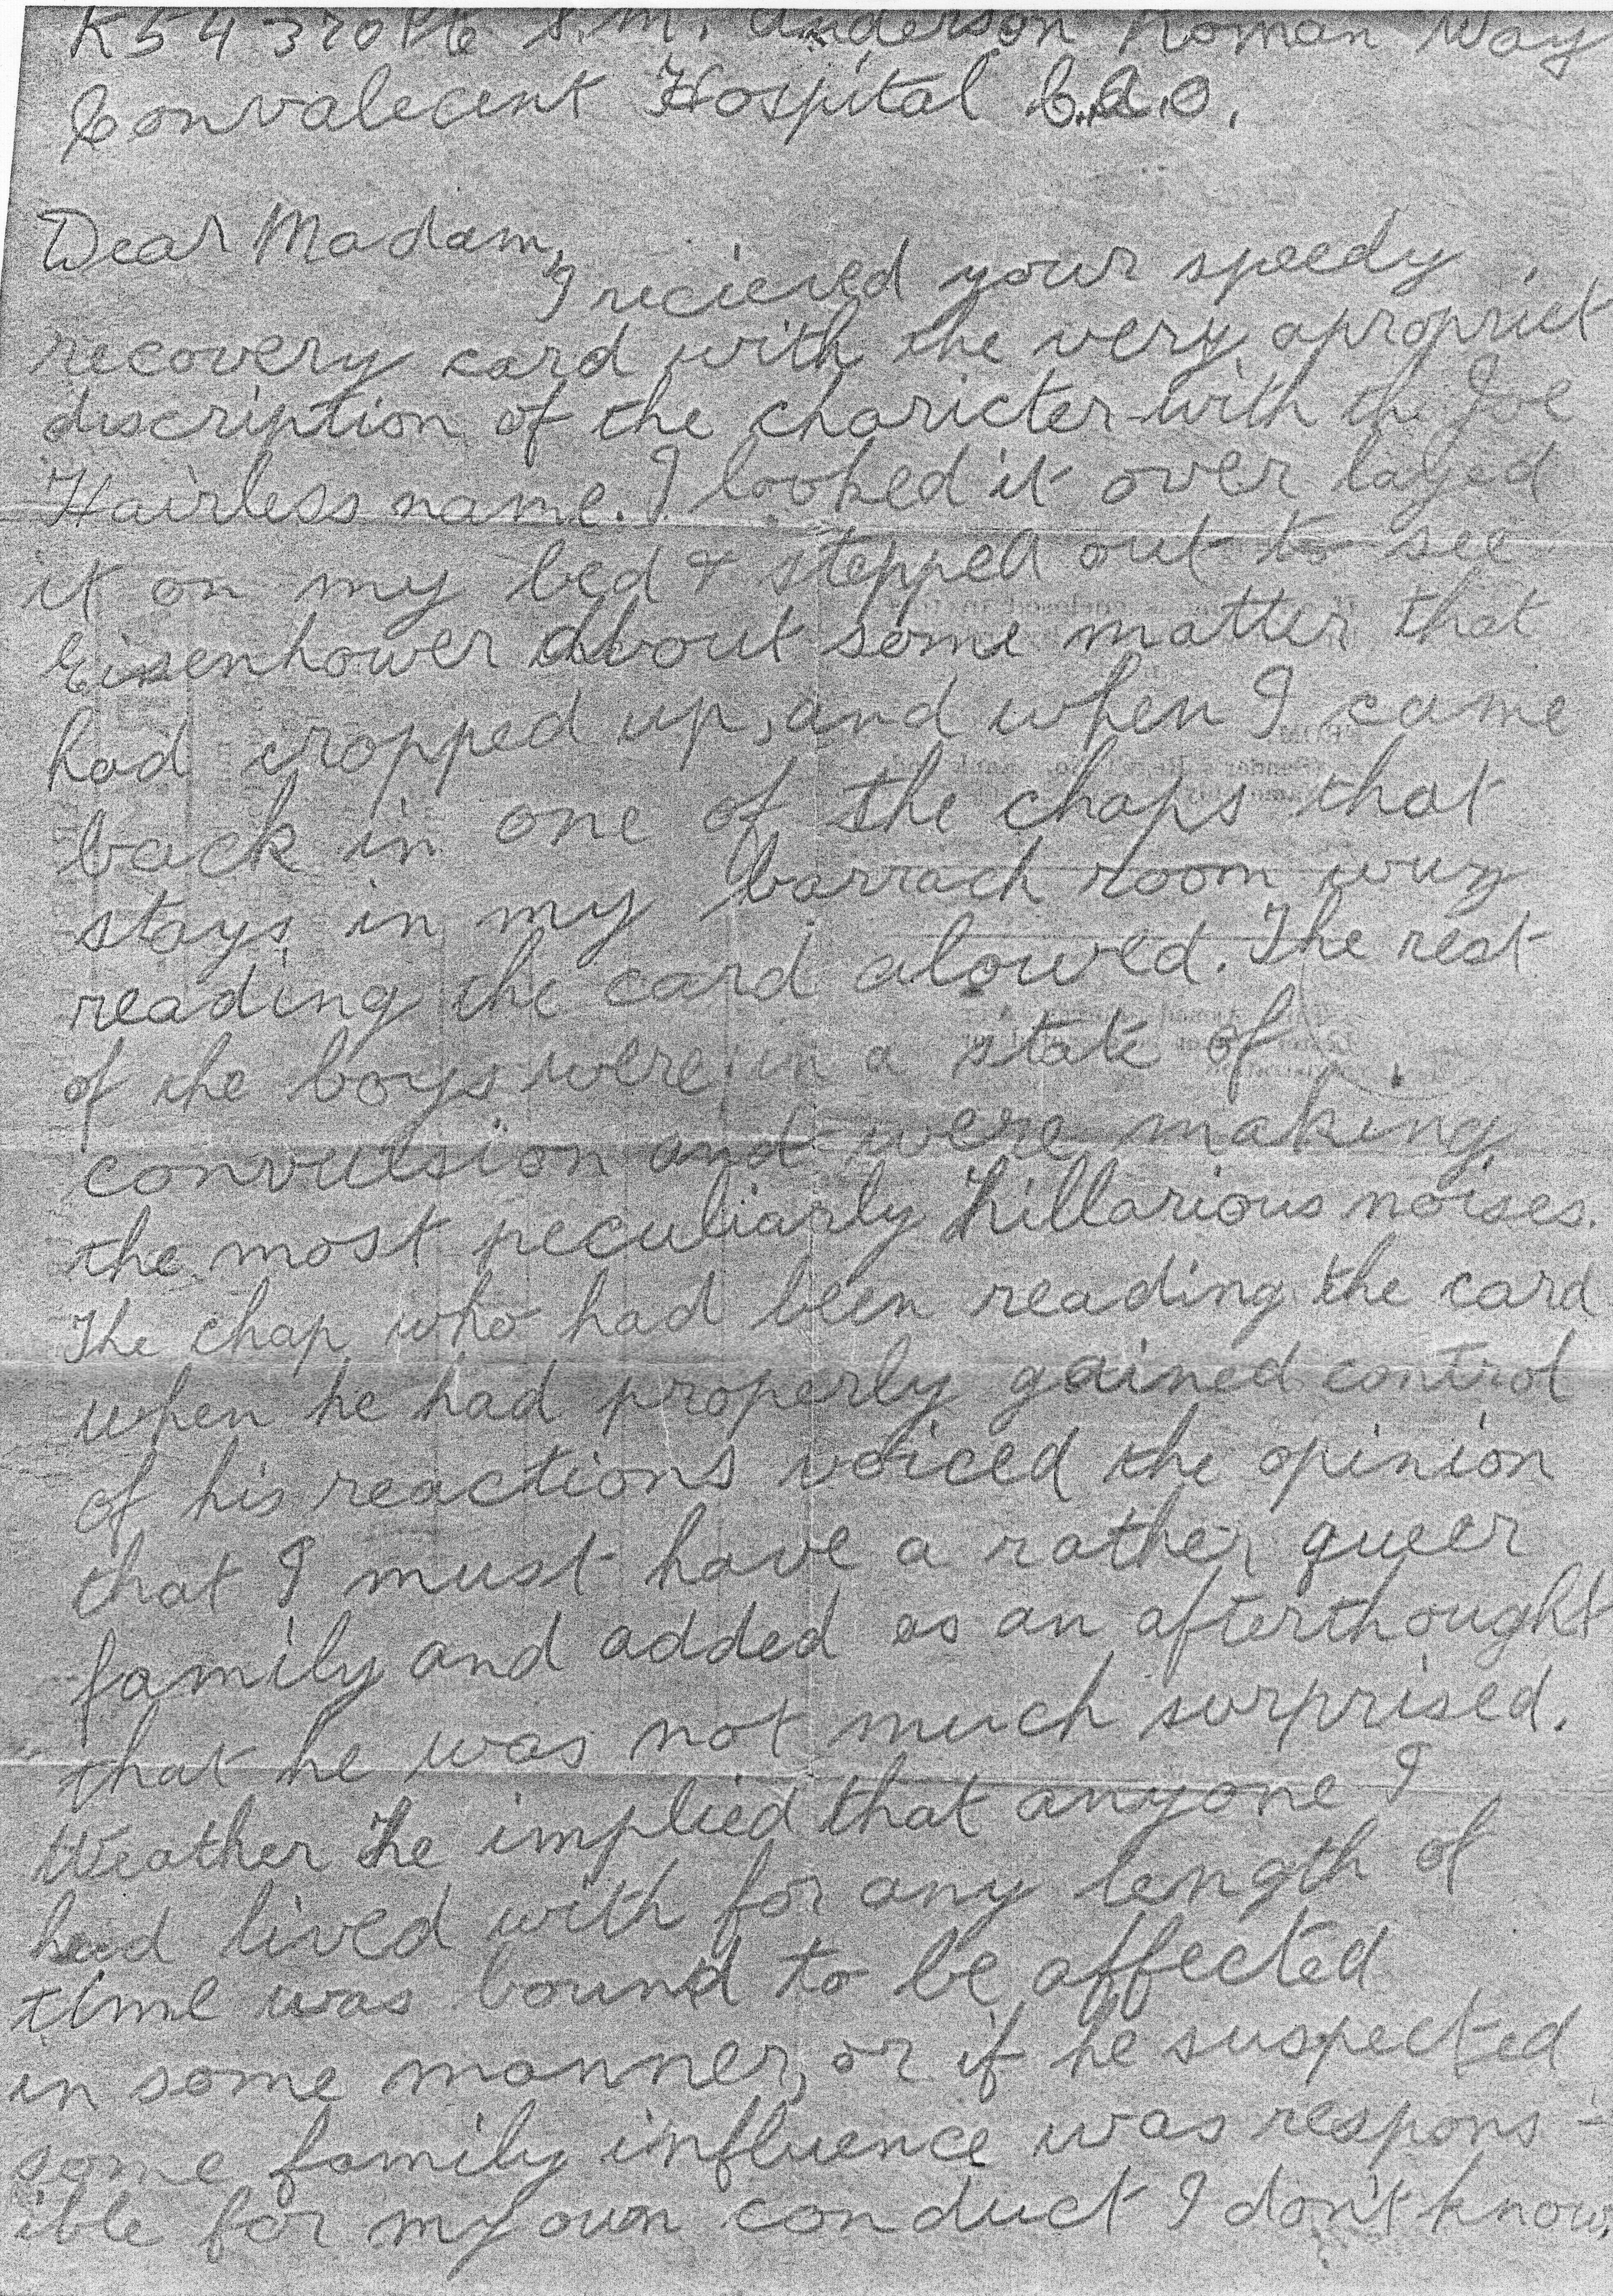 K54370 Pte S.M. Anderson Roman Way
Convalecent Hospital C.A.O.
Dear Madam,
I recieved your speedy
recovery card with the very apropriet
discription of the charicter with the Joe
Hairless name. I looked it over layed
it on my bed & stepped out to see
Eisenhower about some matter that
had cropped up, and when I came
back in one of the chaps that
stays in my barrack room wuz
reading the card alowed. The rest
of the boys were in a state of
convulsion and were making
the most peculiarly hillarious noises.
The chap who had been reading the card
when he had properly gained control
of his reactions voiced the opinion
that I must have a rather queer
family and added as an afterthought
that he was not much surprised.
Weather he implied that anyone I
had lived with for any length of
time was bound to be affected
in some manner, or if he suspected
some family influence was respons-
ible for my own conduct I don't know.